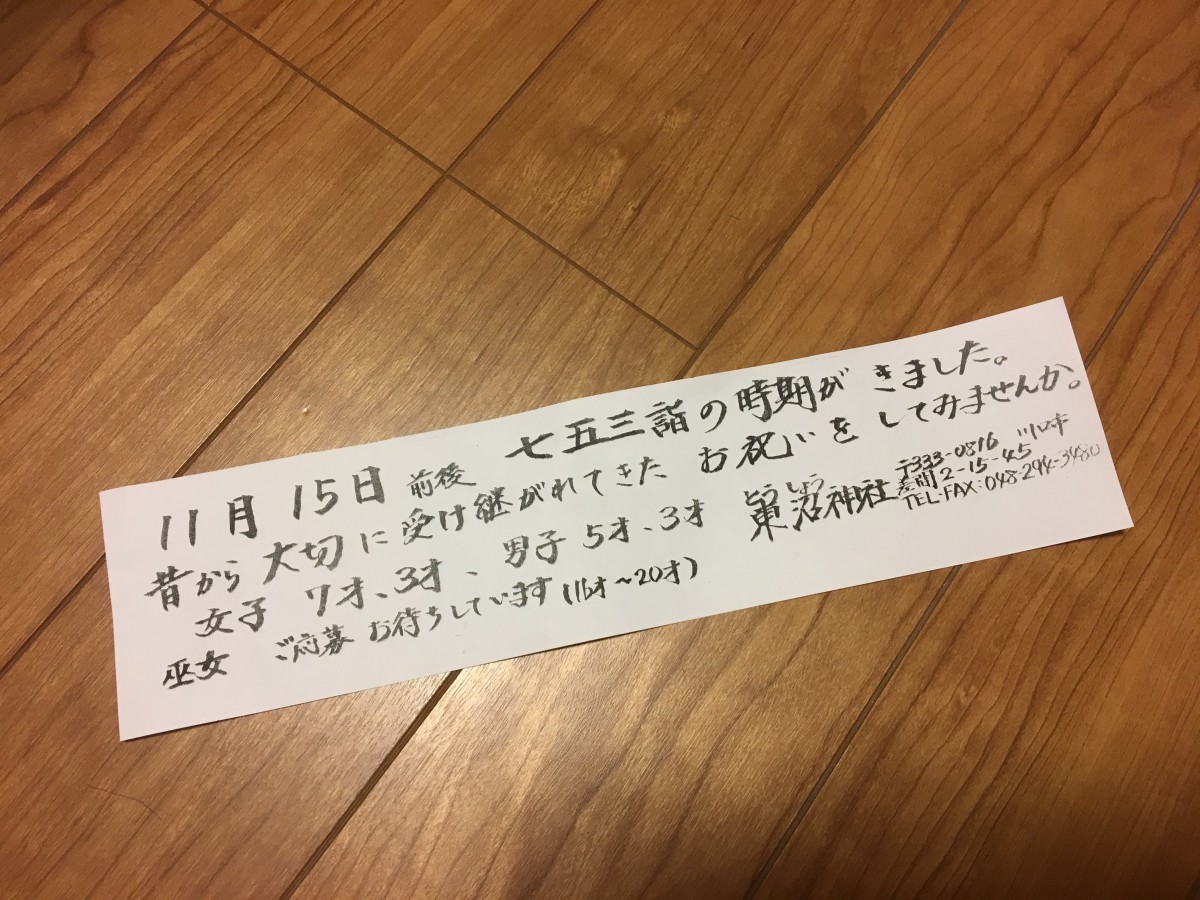 11月15日 前後 七五三詣の時期がきました。
昔から大切に受け継がれてきたお祝いをしてみませんか。
女子 7才、3才、男子 5才、3才
巫女 ご応募お待ちしています(16才~20才)
とうしょう
東沼神社
〒333-0816 川口市
差間2-15-45
TEL・FAX:048-294-3480